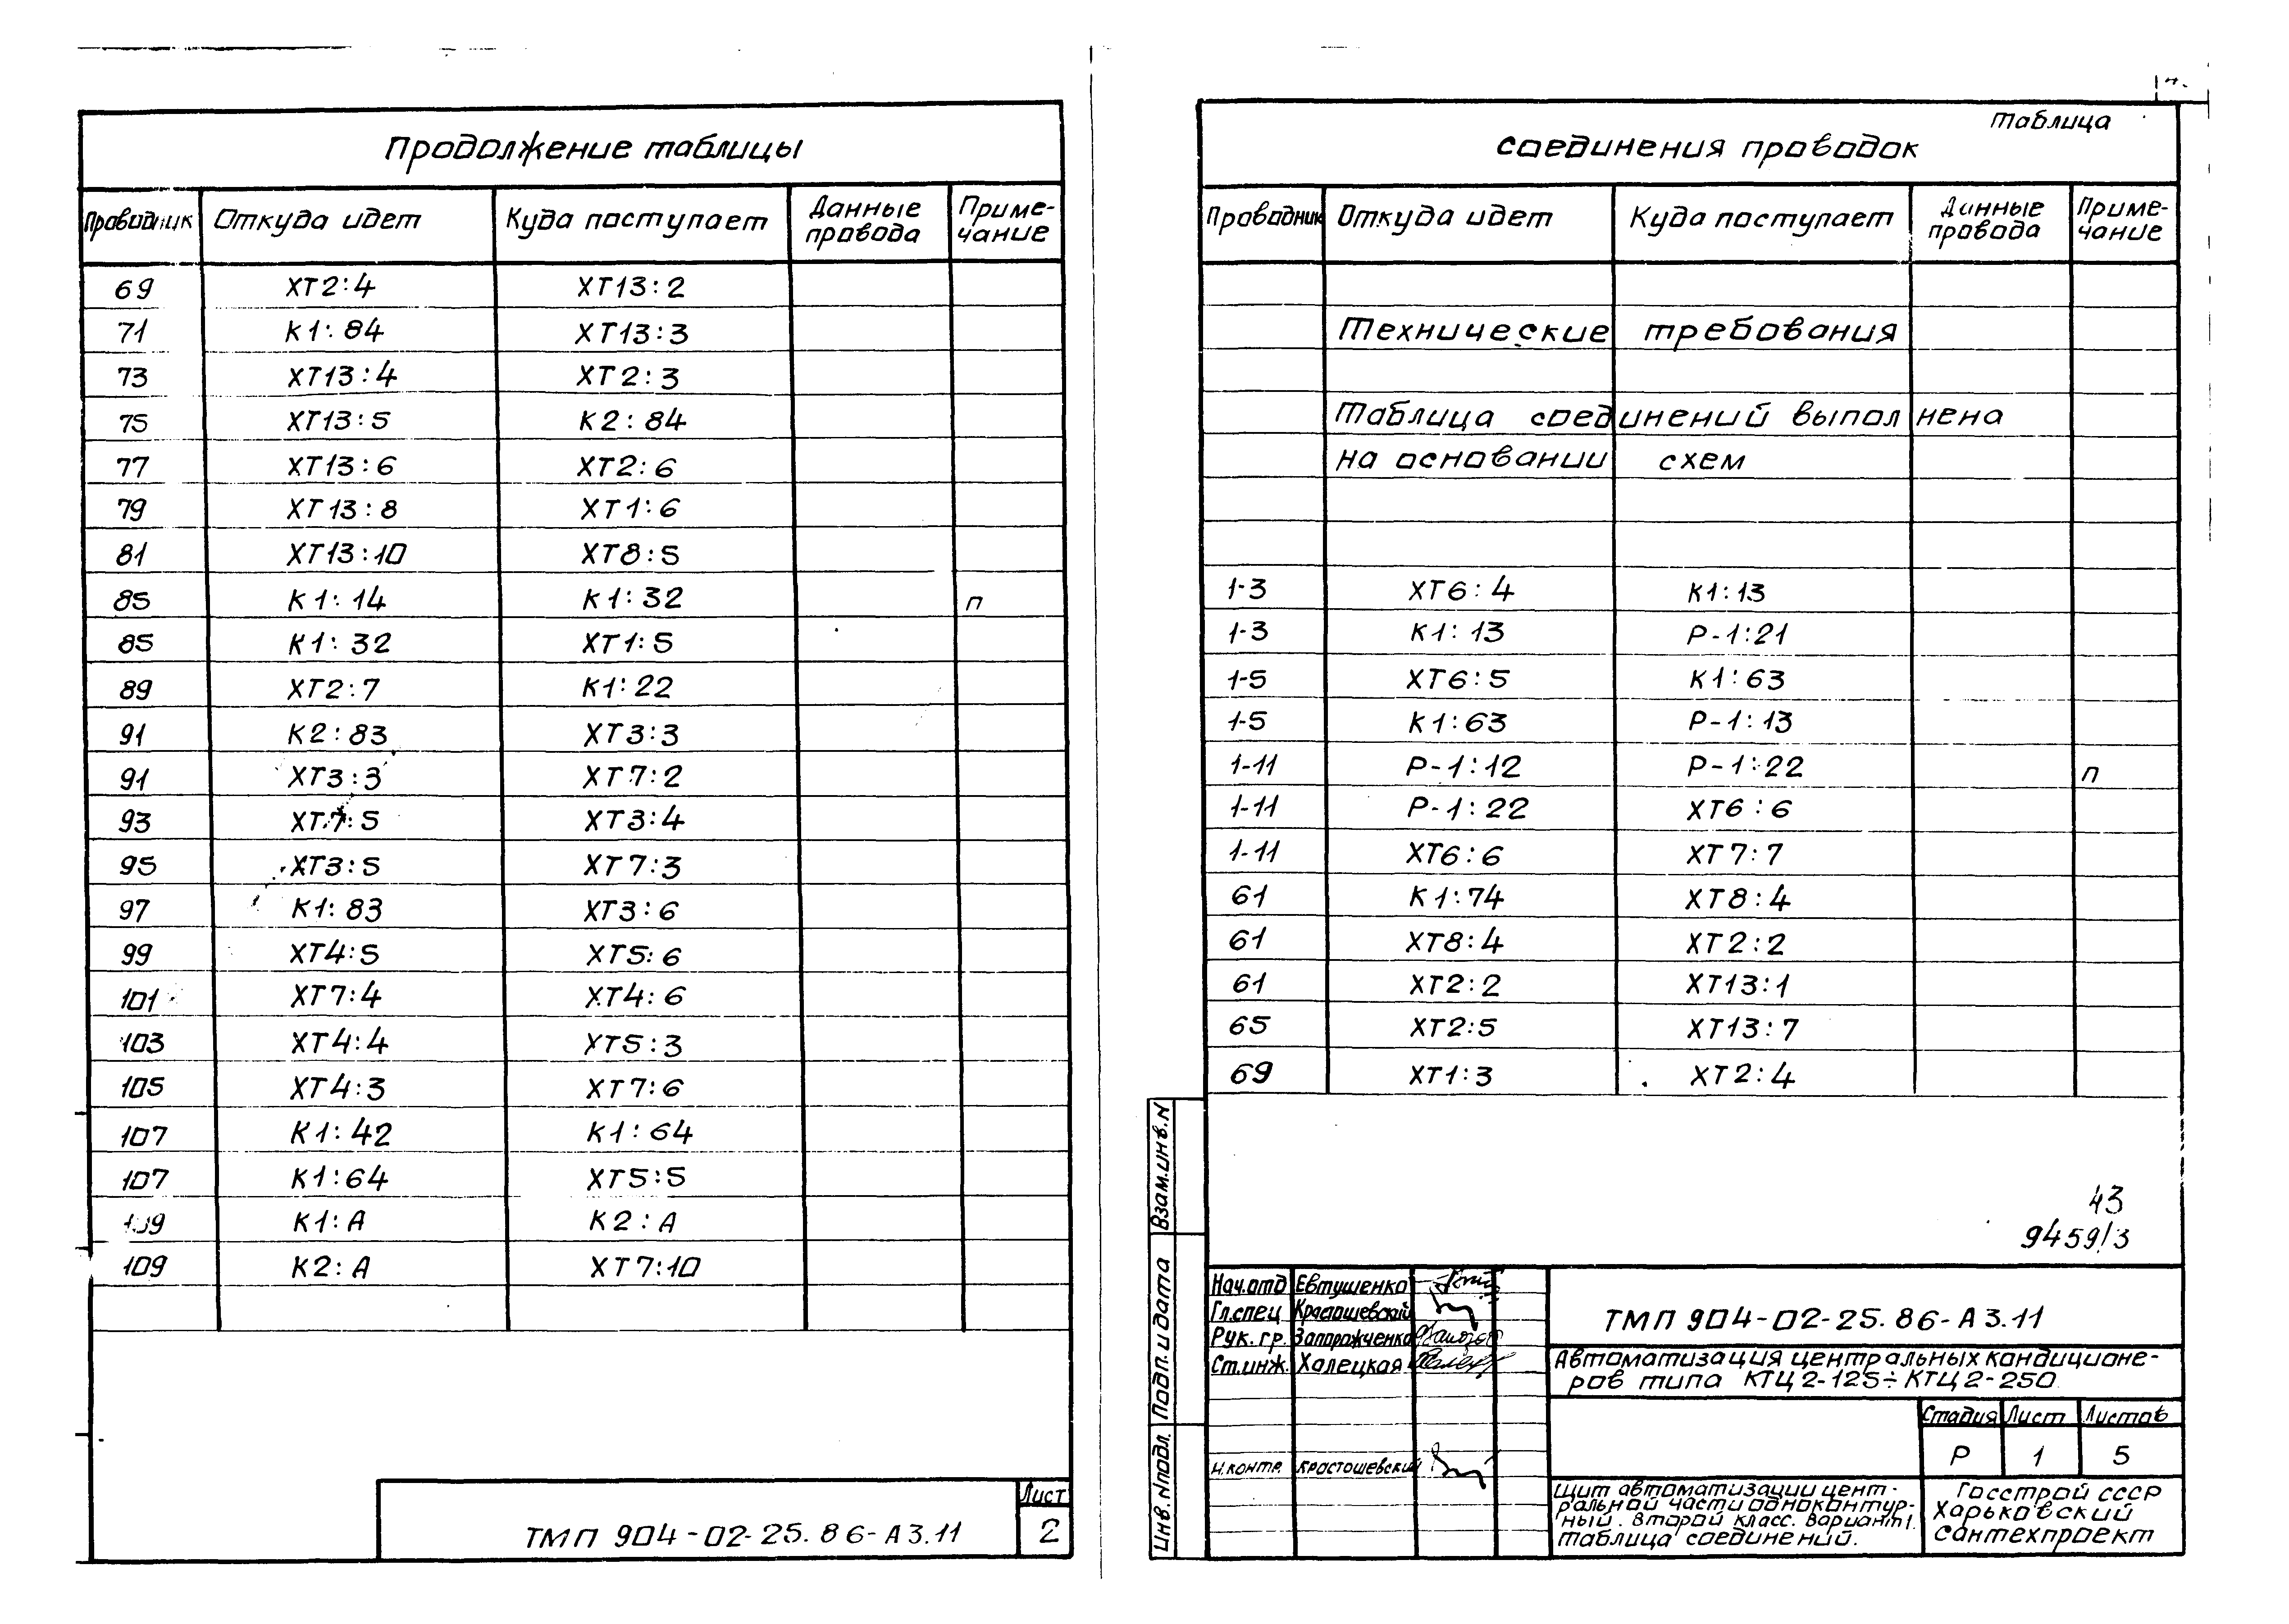 Продолжение таблицы
Проводник Откуда идет Куда поступает Данные провода Приме-чание
69 ХТ2:4 ХТ13:2
71 К1:84 ХТ13:3
73 ХТ13:4 ХТ2:3
75 ХТ13:5 К2:84
77 ХТ13:6 ХТ2:6
79 ХТ13:8 ХТ1:6
81 ХТ13:10 ХТ8:5
85 К1:14 К1:32 п
85 К1:32 ХТ1:5
89 ХТ2:7 К1:22
91 К2:83 ХТ3:3
91 ХТ3:3 ХТ7:2
93 ХТ7:5 ХТ3:4
95 ХТ3:5 ХТ7:3
97 К1:83 ХТ3:6
99 ХТ4:5 ХТ5:6
101 ХТ7:4 ХТ4:6
103 ХТ4:4 ХТ5:3
105 ХТ4:3 ХТ7:6
107 К1:42 К1:64
107 К1:64 ХТ5:5
109 К1:А К2:А
109 К2:А ХТ7:10
ТМП 904-02-25.86-А3.11
Лист
2
Таблица
соединения проводок
Проводник Откуда идет Куда поступает Данные провода Приме-чание
Технические требования
Таблица соединений выполнена
на основании схем
1-3 ХТ6:4 К1:13
1-3 К1:13 Р-1:21
1-5 ХТ6:5 К1:63
1-5 К1:63 Р-1:13
1-11 Р-1:12 Р-1:22 п
1-11 Р-1:22 ХТ6:6
1-11 ХТ6:6 ХТ7:7
61 К1:74 ХТ8:4
61 ХТ8:4 ХТ2:2
61 ХТ2:2 ХТ13:1
65 ХТ2:5 ХТ13:7
69 ХТ1:3 ХТ2:4
43
9459/3
Взам.инв.N
Подп. и дата
Инв. N подл.
Нач.отд Евтушенко
Гл.спец
Рук. гр. Запорожченко
Ст.инж. Халецкая
Н.контр.
ТМП 904-02-25.86-А3.11
Автоматизация центральных кондиционе-
ров типа КТЦ 2-125÷КТЦ 2-250
Стадия Лист Листов
Р 1 5
Щит автоматизации цент-
ральной части одноконтур-
ный. Второй класс. Вариант 1.
Таблица соединений.
Госстрой СССР
Харьковский
сантехпроект